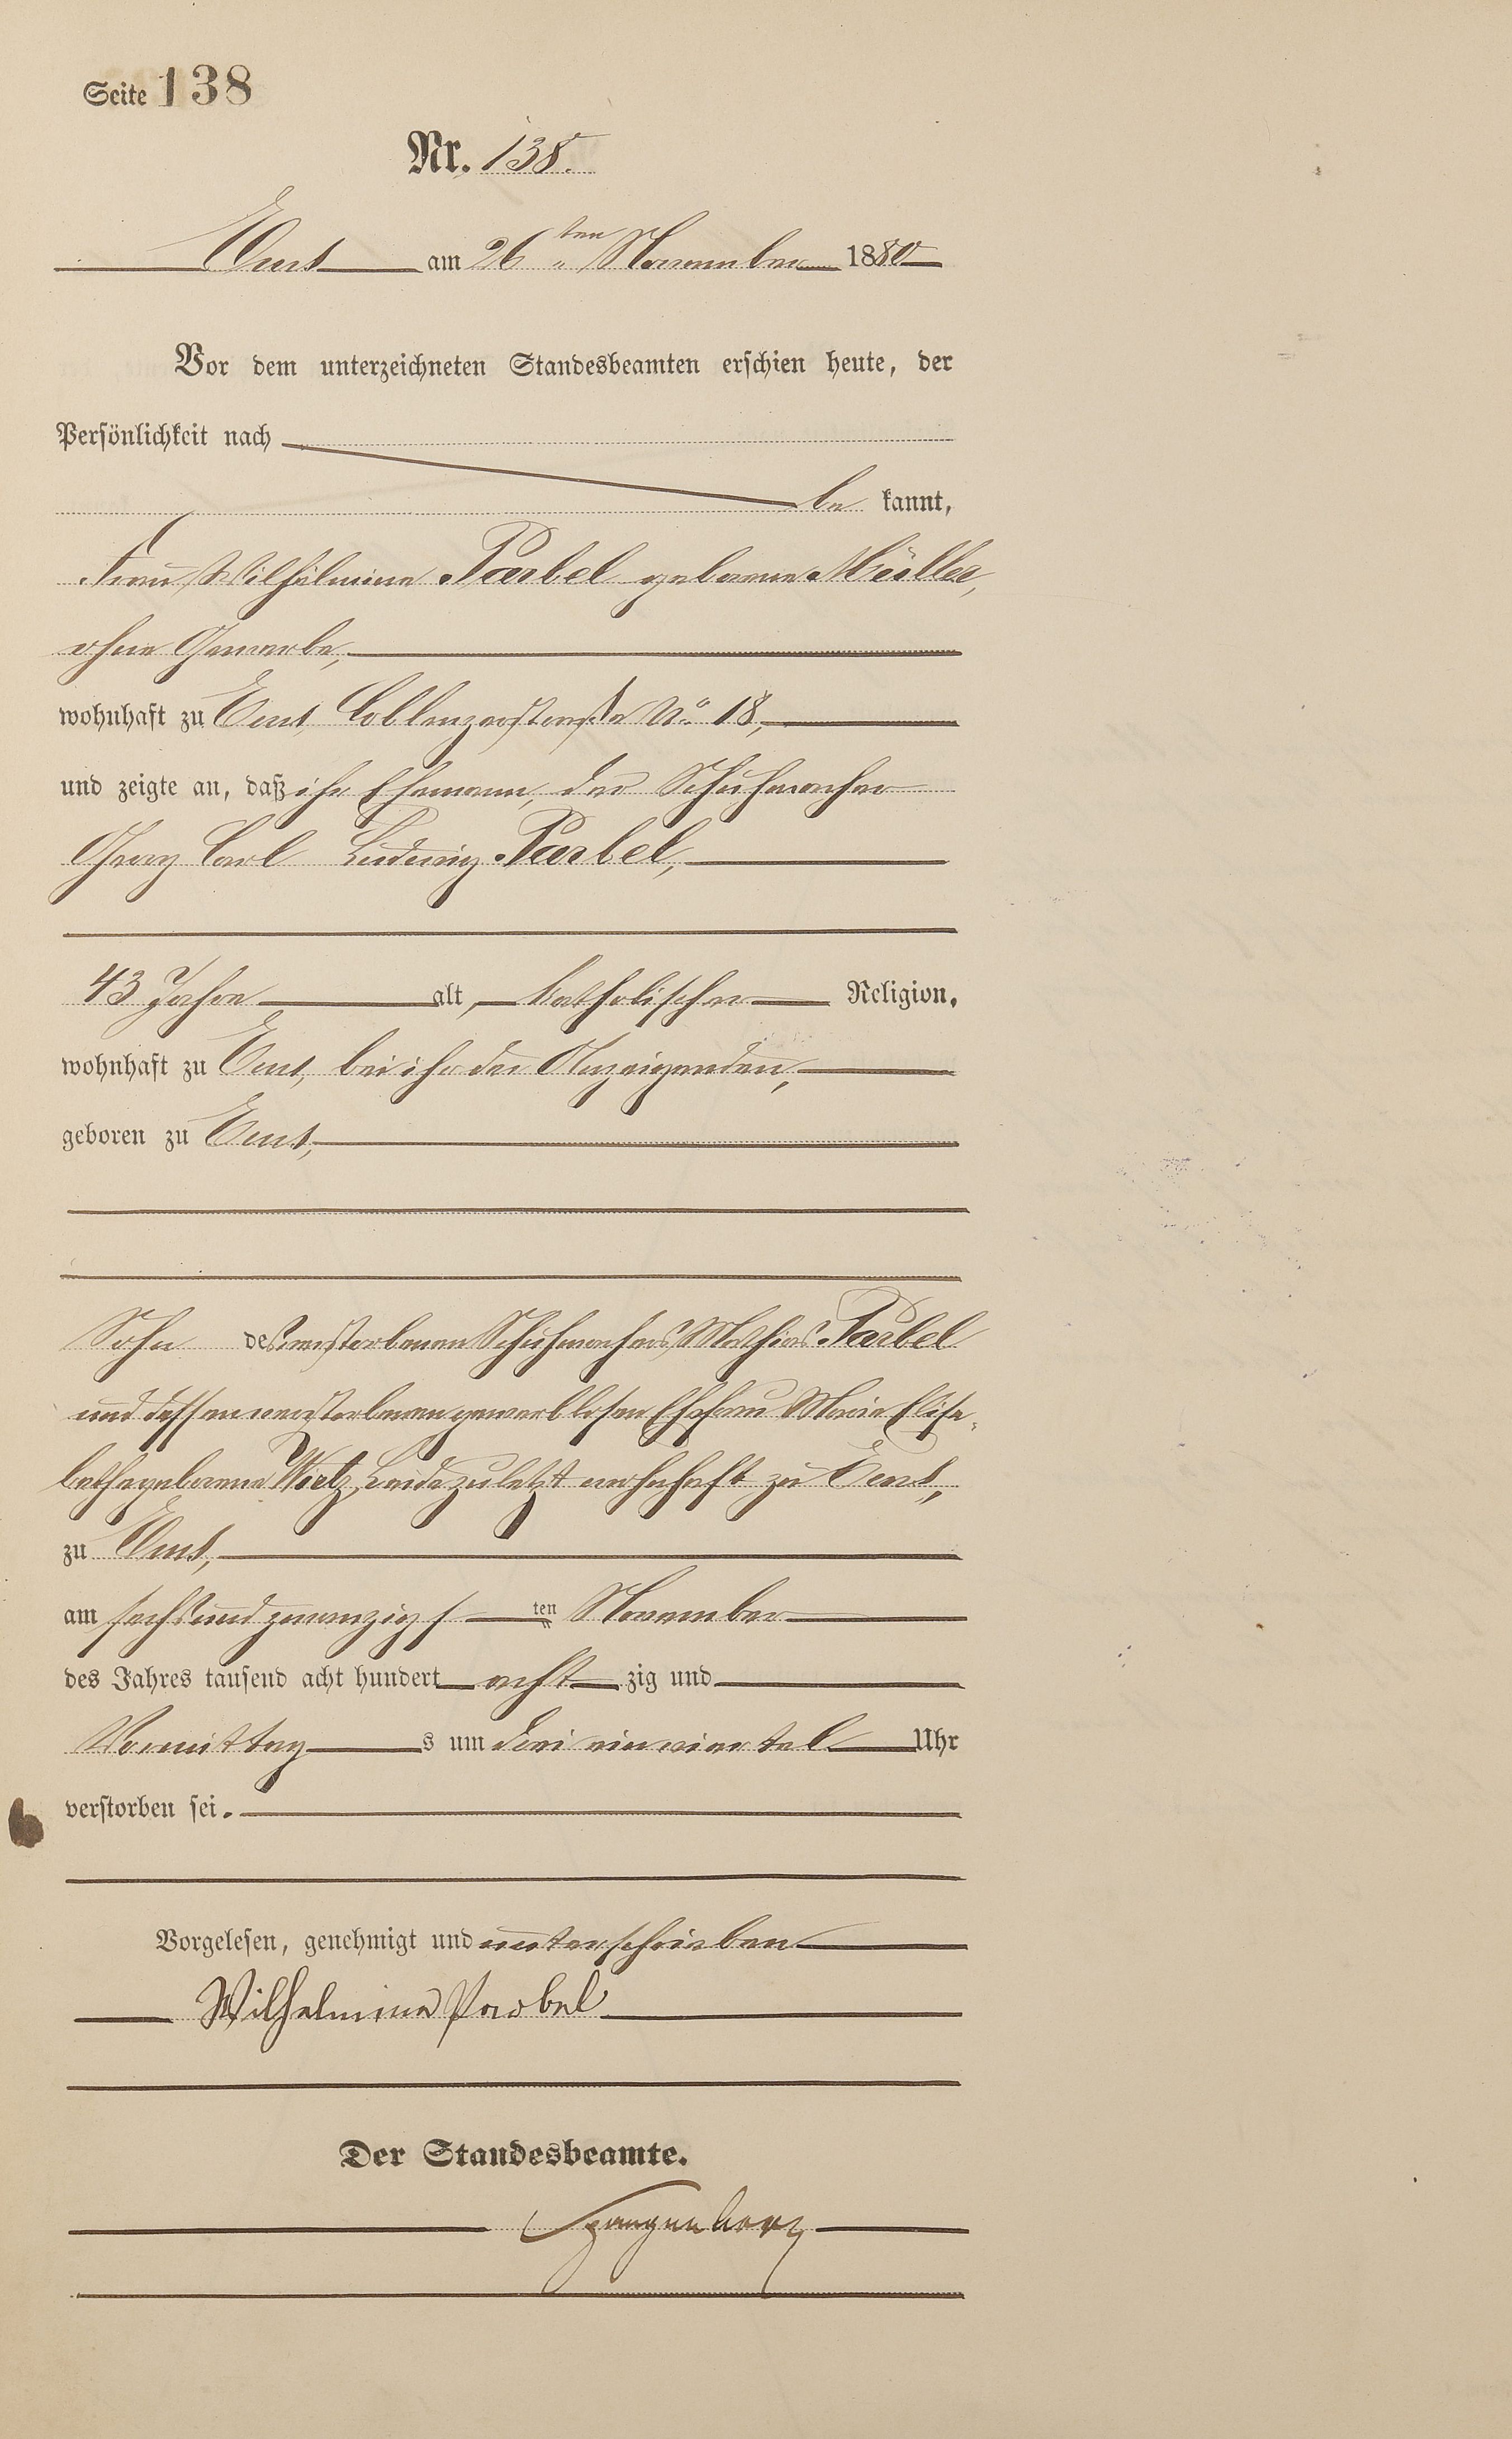 Seite 138
Nr. 138.
Ems am 26ten November 1880
Vor dem unterzeichneten Standesbeamten erschien heute, der
Persönlichkeit nach
be kannt,
Frau Wilhelmine Parbel geborene Müller,
ohne Gewerbe,
wohnhaft zu Ems, Coblenzerstraße No 18,
und zeigte an, daß ihr Ehemann, der Schuhmacher
Georg Carl Ludwig Parbel,
43 Jahre alt, katholischer Religion,
wohnhaft zu Ems, bei ihr der Anzeigenden,
geboren zu Ems,
Sohn des verstorbenen Schuhmachers Mathias Parbel
und dessen verstorbenen gewerblosen Ehefrau Maria Elisa-
betha geborene Wietz, beide zuletzt wohnhaft zu Ems,
zu Ems,
am sechsundzwanzigsten November
des Jahres tausend acht hundert acht zig und
Vormittags um drei einviertel Uhr
verstorben sei.
Vorgelesen, genehmigt und unterschrieben
Wilhelmine Parbel
Der Standesbeamte.
Spangenberg